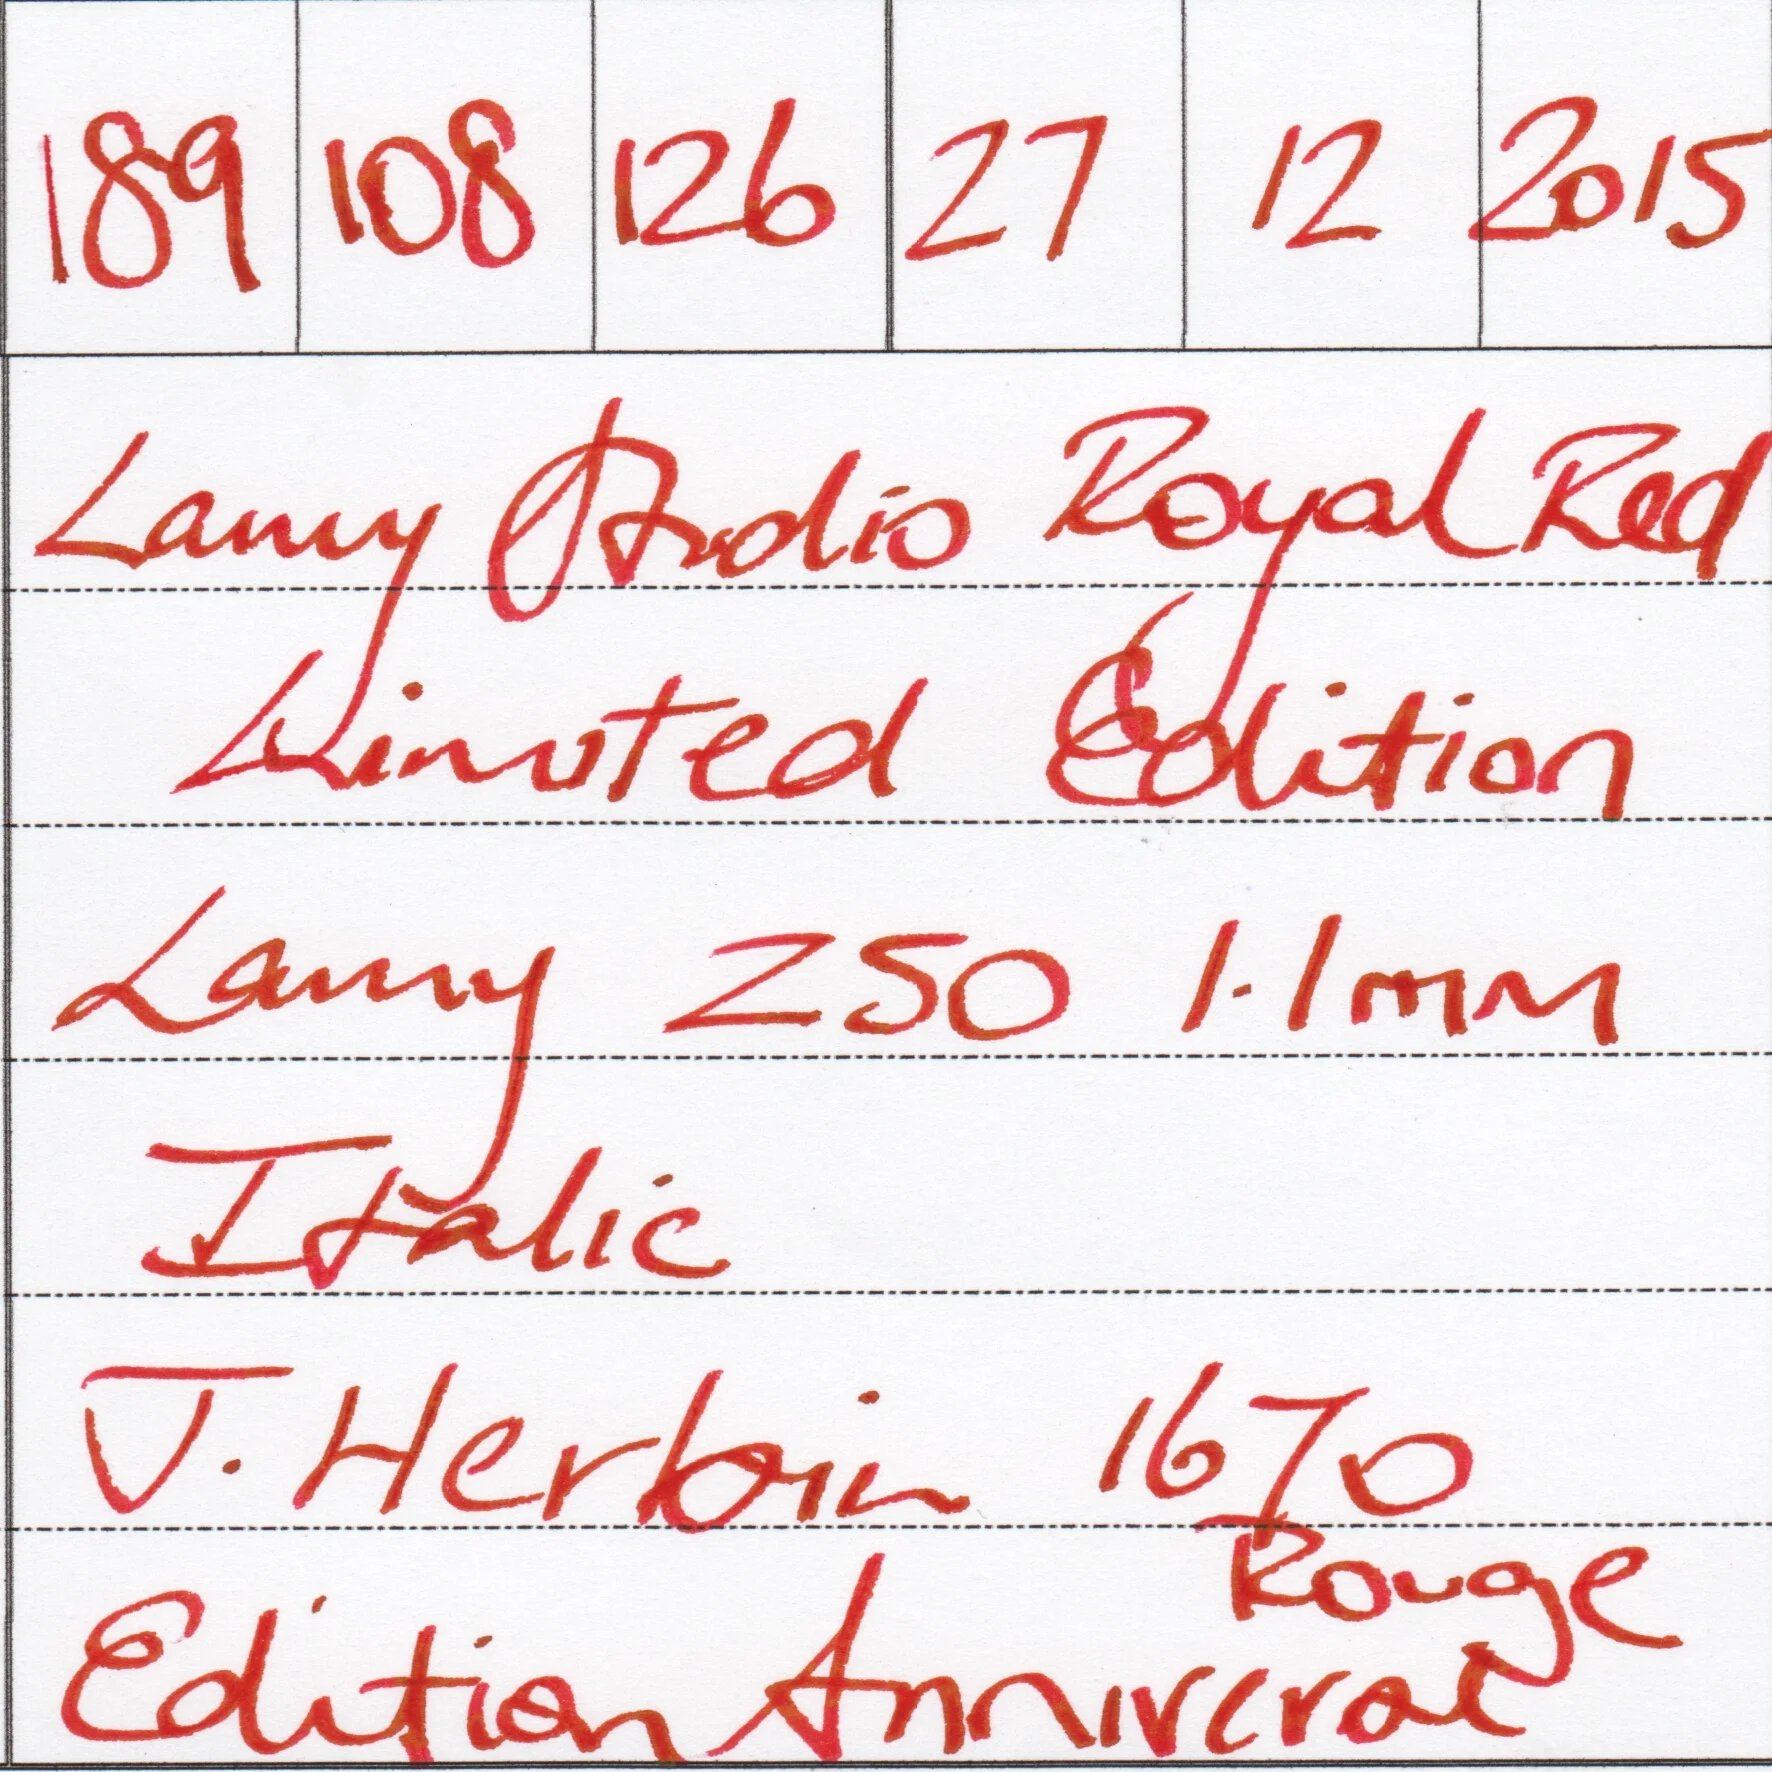 189 108 126 27 12 2015
Lamy Studio Royal Red
Limited Edition
Lamy Z50 1.1mm
Italic
J. Herbin 1670
Rouge
Edition